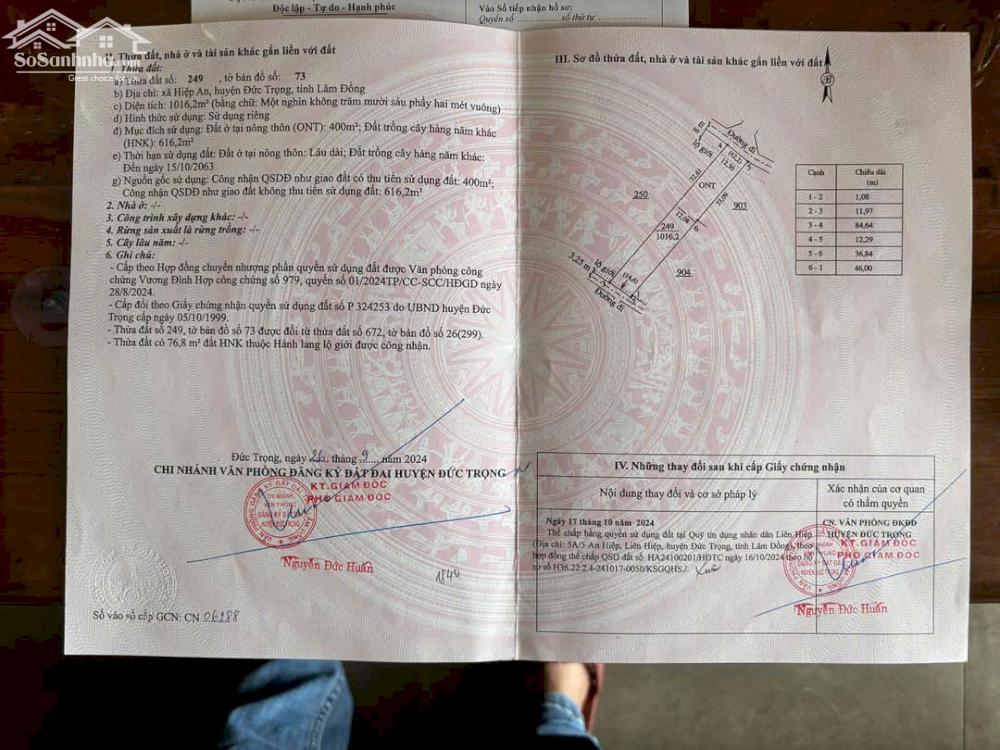 Độc lập - Tự do - Hạnh phúc
Vào Sổ tiếp nhận hồ sơ:
Quyển số số thứ tự
SoSanhnha
Great choice
II. Thửa đất, nhà ở và tài sản khác gắn liền với đất
1. Thửa đất:
a) Thửa đất số: 249 , tờ bản đồ số: 73
b) Địa chỉ: xã Hiệp An, huyện Đức Trọng, tỉnh Lâm Đồng
c) Diện tích: 1016,2m² (bằng chữ: Một nghìn không trăm mười sáu phẩy hai mét vuông)
d) Hình thức sử dụng: Sử dụng riêng
đ) Mục đích sử dụng: Đất ở tại nông thôn (ONT): 400m²; Đất trồng cây hàng năm khác
(HNK): 616,2m²
e) Thời hạn sử dụng đất: Đất ở tại nông thôn: Lâu dài; Đất trồng cây hàng năm khác:
Đến ngày 15/10/2063
g) Nguồn gốc sử dụng: Công nhận QSDĐ như giao đất có thu tiền sử dụng đất: 400m²;
Công nhận QSDĐ như giao đất không thu tiền sử dụng đất: 616,2m²
2. Nhà ở: -/-
3. Công trình xây dựng khác: -/-
4. Rừng sản xuất là rừng trồng: -/-
5. Cây lâu năm: -/-
6. Ghi chú:
- Cấp theo Hợp đồng chuyển nhượng phần quyền sử dụng đất được Văn phòng công
chứng Vương Đình Hợp công chứng số 979, quyển số 01/2024TP/CC-SCC/HĐGD ngày
28/8/2024.
- Cấp đổi theo Giấy chứng nhận quyền sử dụng đất số P 324253 do UBND huyện Đức
Trọng cấp ngày 05/10/1999.
- Thửa đất số 249, tờ bản đồ số 73 được đổi từ thửa đất số 672, tờ bản đồ số 26(299).
- Thửa đất có 76,8 m² đất HNK thuộc Hành lang lộ giới được công nhận.
Đức Trọng, ngày 26 tháng 9 năm 2024
CHI NHÁNH VĂN PHÒNG ĐĂNG KÝ ĐẤT ĐAI HUYỆN ĐỨC TRỌNG
KT.GIÁM ĐỐC
PHÓ GIÁM ĐỐC
CHI NHÁNH
VĂN PHÒNG
ĐĂNG KÝ ĐẤT ĐAI
HUYỆN ĐỨC TRỌNG
Nguyễn Đức Huấn
1840
Số vào sổ cấp GCN: CN 06288
III. Sơ đồ thửa đất, nhà ở và tài sản khác gắn liền với đất
B
Đường đi
8 m
lộ giới
12,50
ONT
32,61
33,09
250
903
12,08
249
1016,2
904
lộ giới
3,25 m
Đường đi
Cạnh Chiều dài
(m)
1 - 2 1,08
2 - 3 11,97
3 - 4 84,64
4 - 5 12,29
5 - 6 36,84
6 - 1 46,00
IV. Những thay đổi sau khi cấp Giấy chứng nhận
Nội dung thay đổi và cơ sở pháp lý
Xác nhận của cơ quan
có thẩm quyền
Ngày 17 tháng 10 năm 2024
Thế chấp bằng quyền sử dụng đất tại Quỹ tín dụng nhân dân Liên Hiệp
(Địa chỉ: 5A/5 An Hiệp, Liên Hiệp, huyện Đức Trọng, tỉnh Lâm Đồng), theo
hợp đồng thế chấp QSD đất số HA24100201/HĐTC ngày 16/10/2024 theo hồ
sơ số H36.22.2.4-241017-0050/KSGQHSJ.
CN. VĂN PHÒNG ĐKĐĐ
HUYỆN ĐỨC TRỌNG
KT.GIÁM ĐỐC
PHÓ GIÁM ĐỐC
Nguyễn Đức Huấn